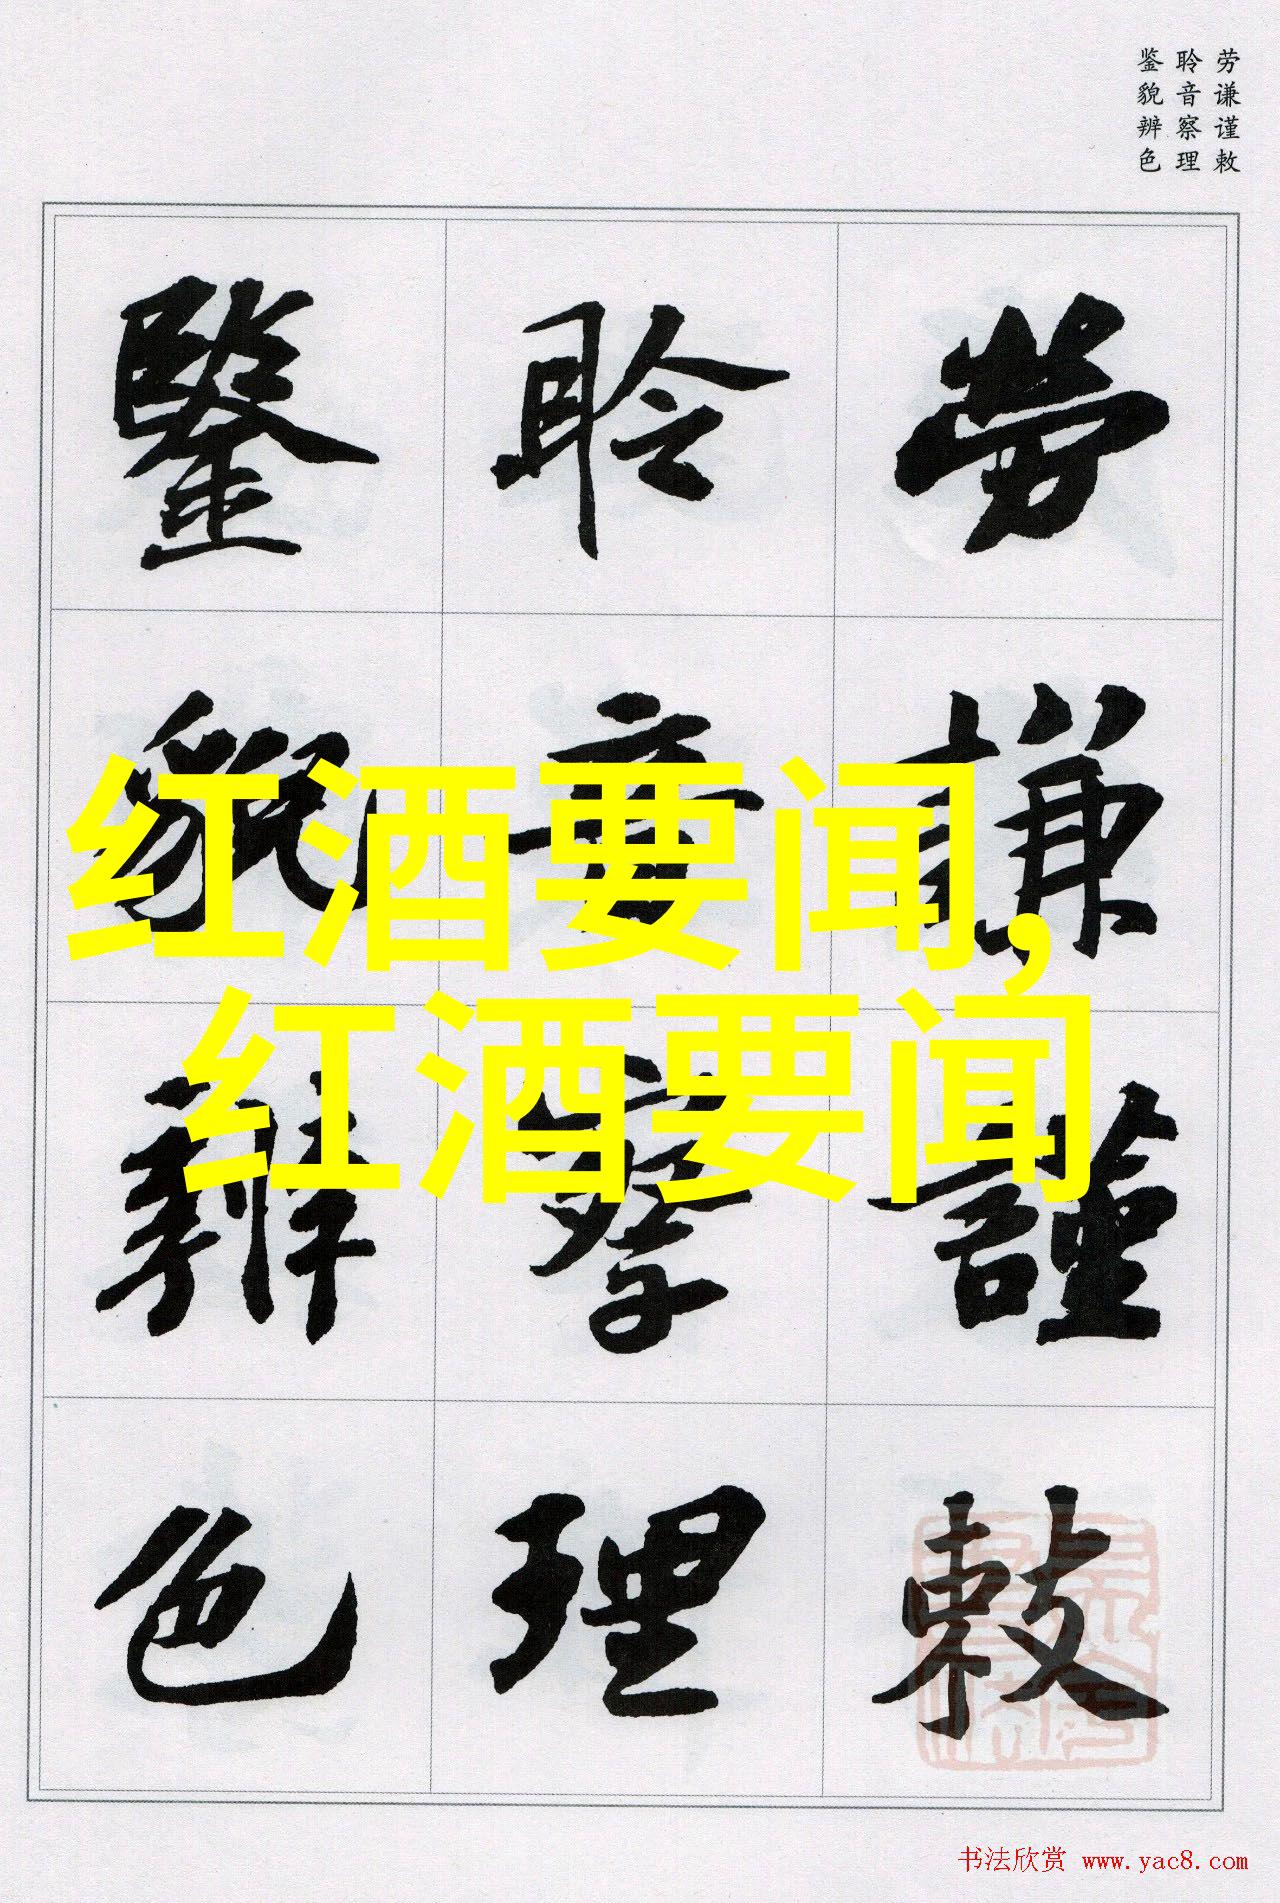 劳谦谨敕
聆音察理
鉴貌辨色
勞謙謹敕
聆音察理
鑒貌辨色
红酒要闻,
红酒要闻
书法欣赏 www.yac8.com